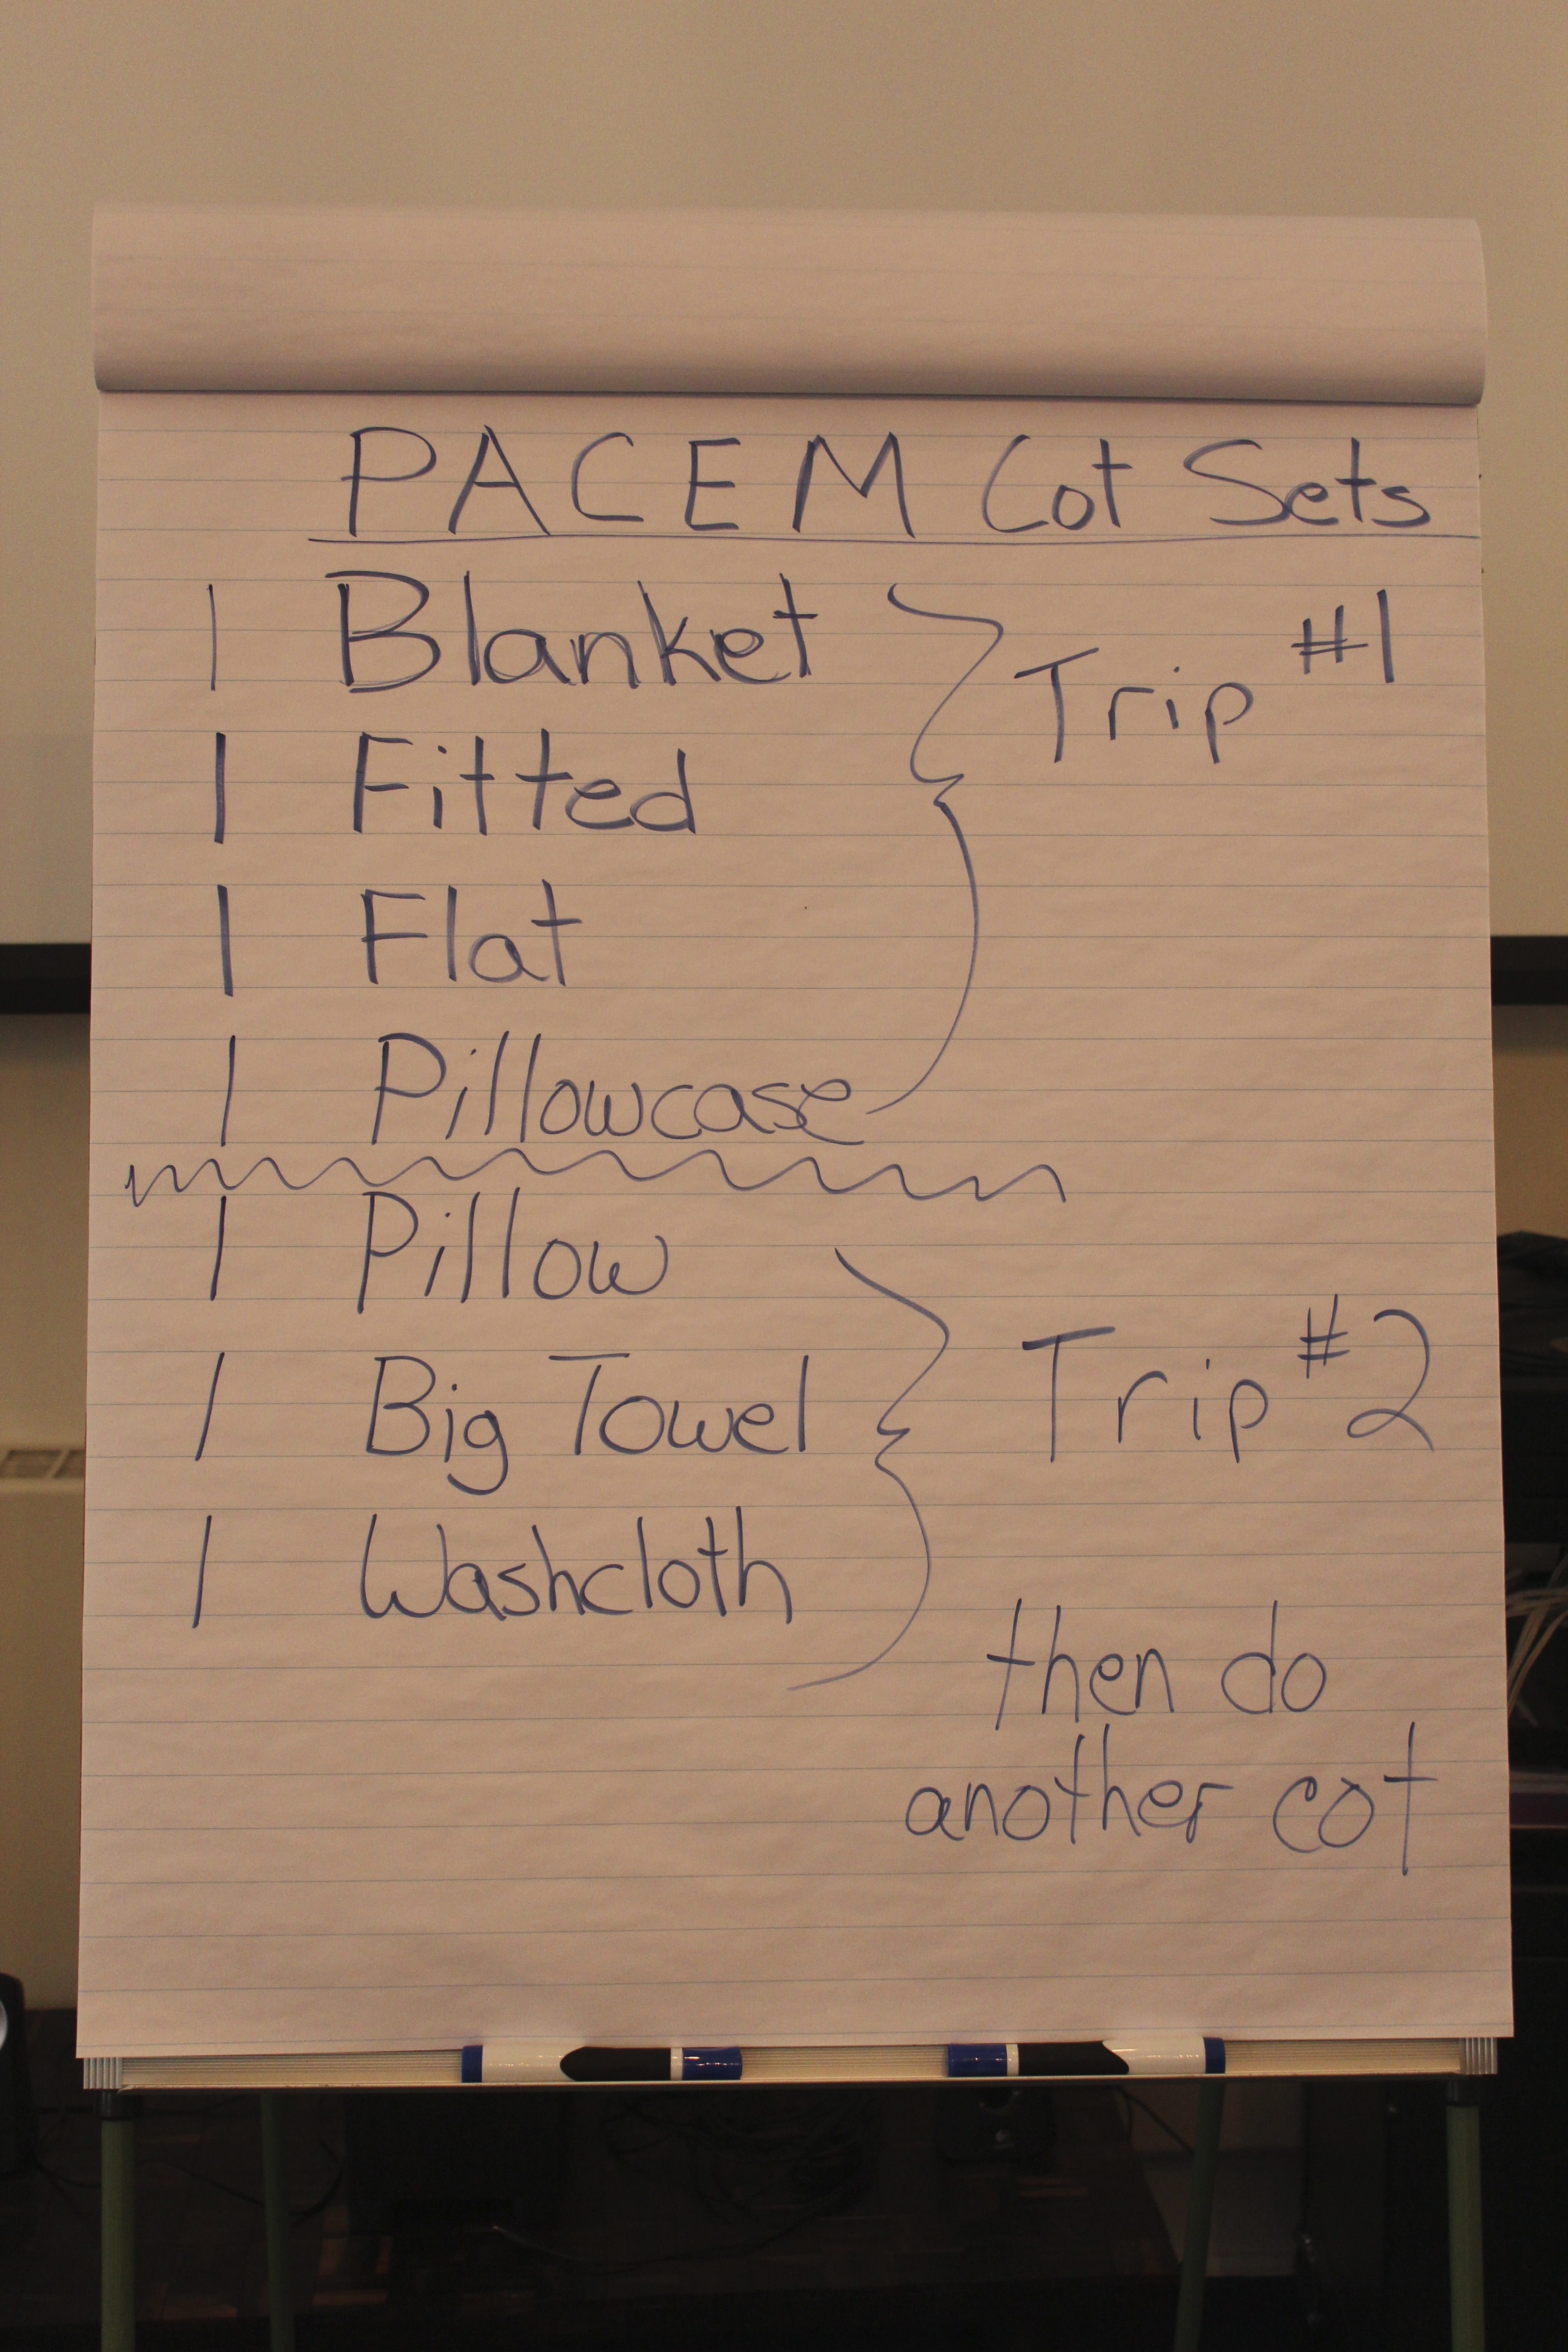 PACEM Cot Sets
1 Blanket
Trip #1
1 Fitted
1 Flat
1 Pillowcase
1 Pillow
1 Big Towel
Trip #2
1 Washcloth
then do
another cot